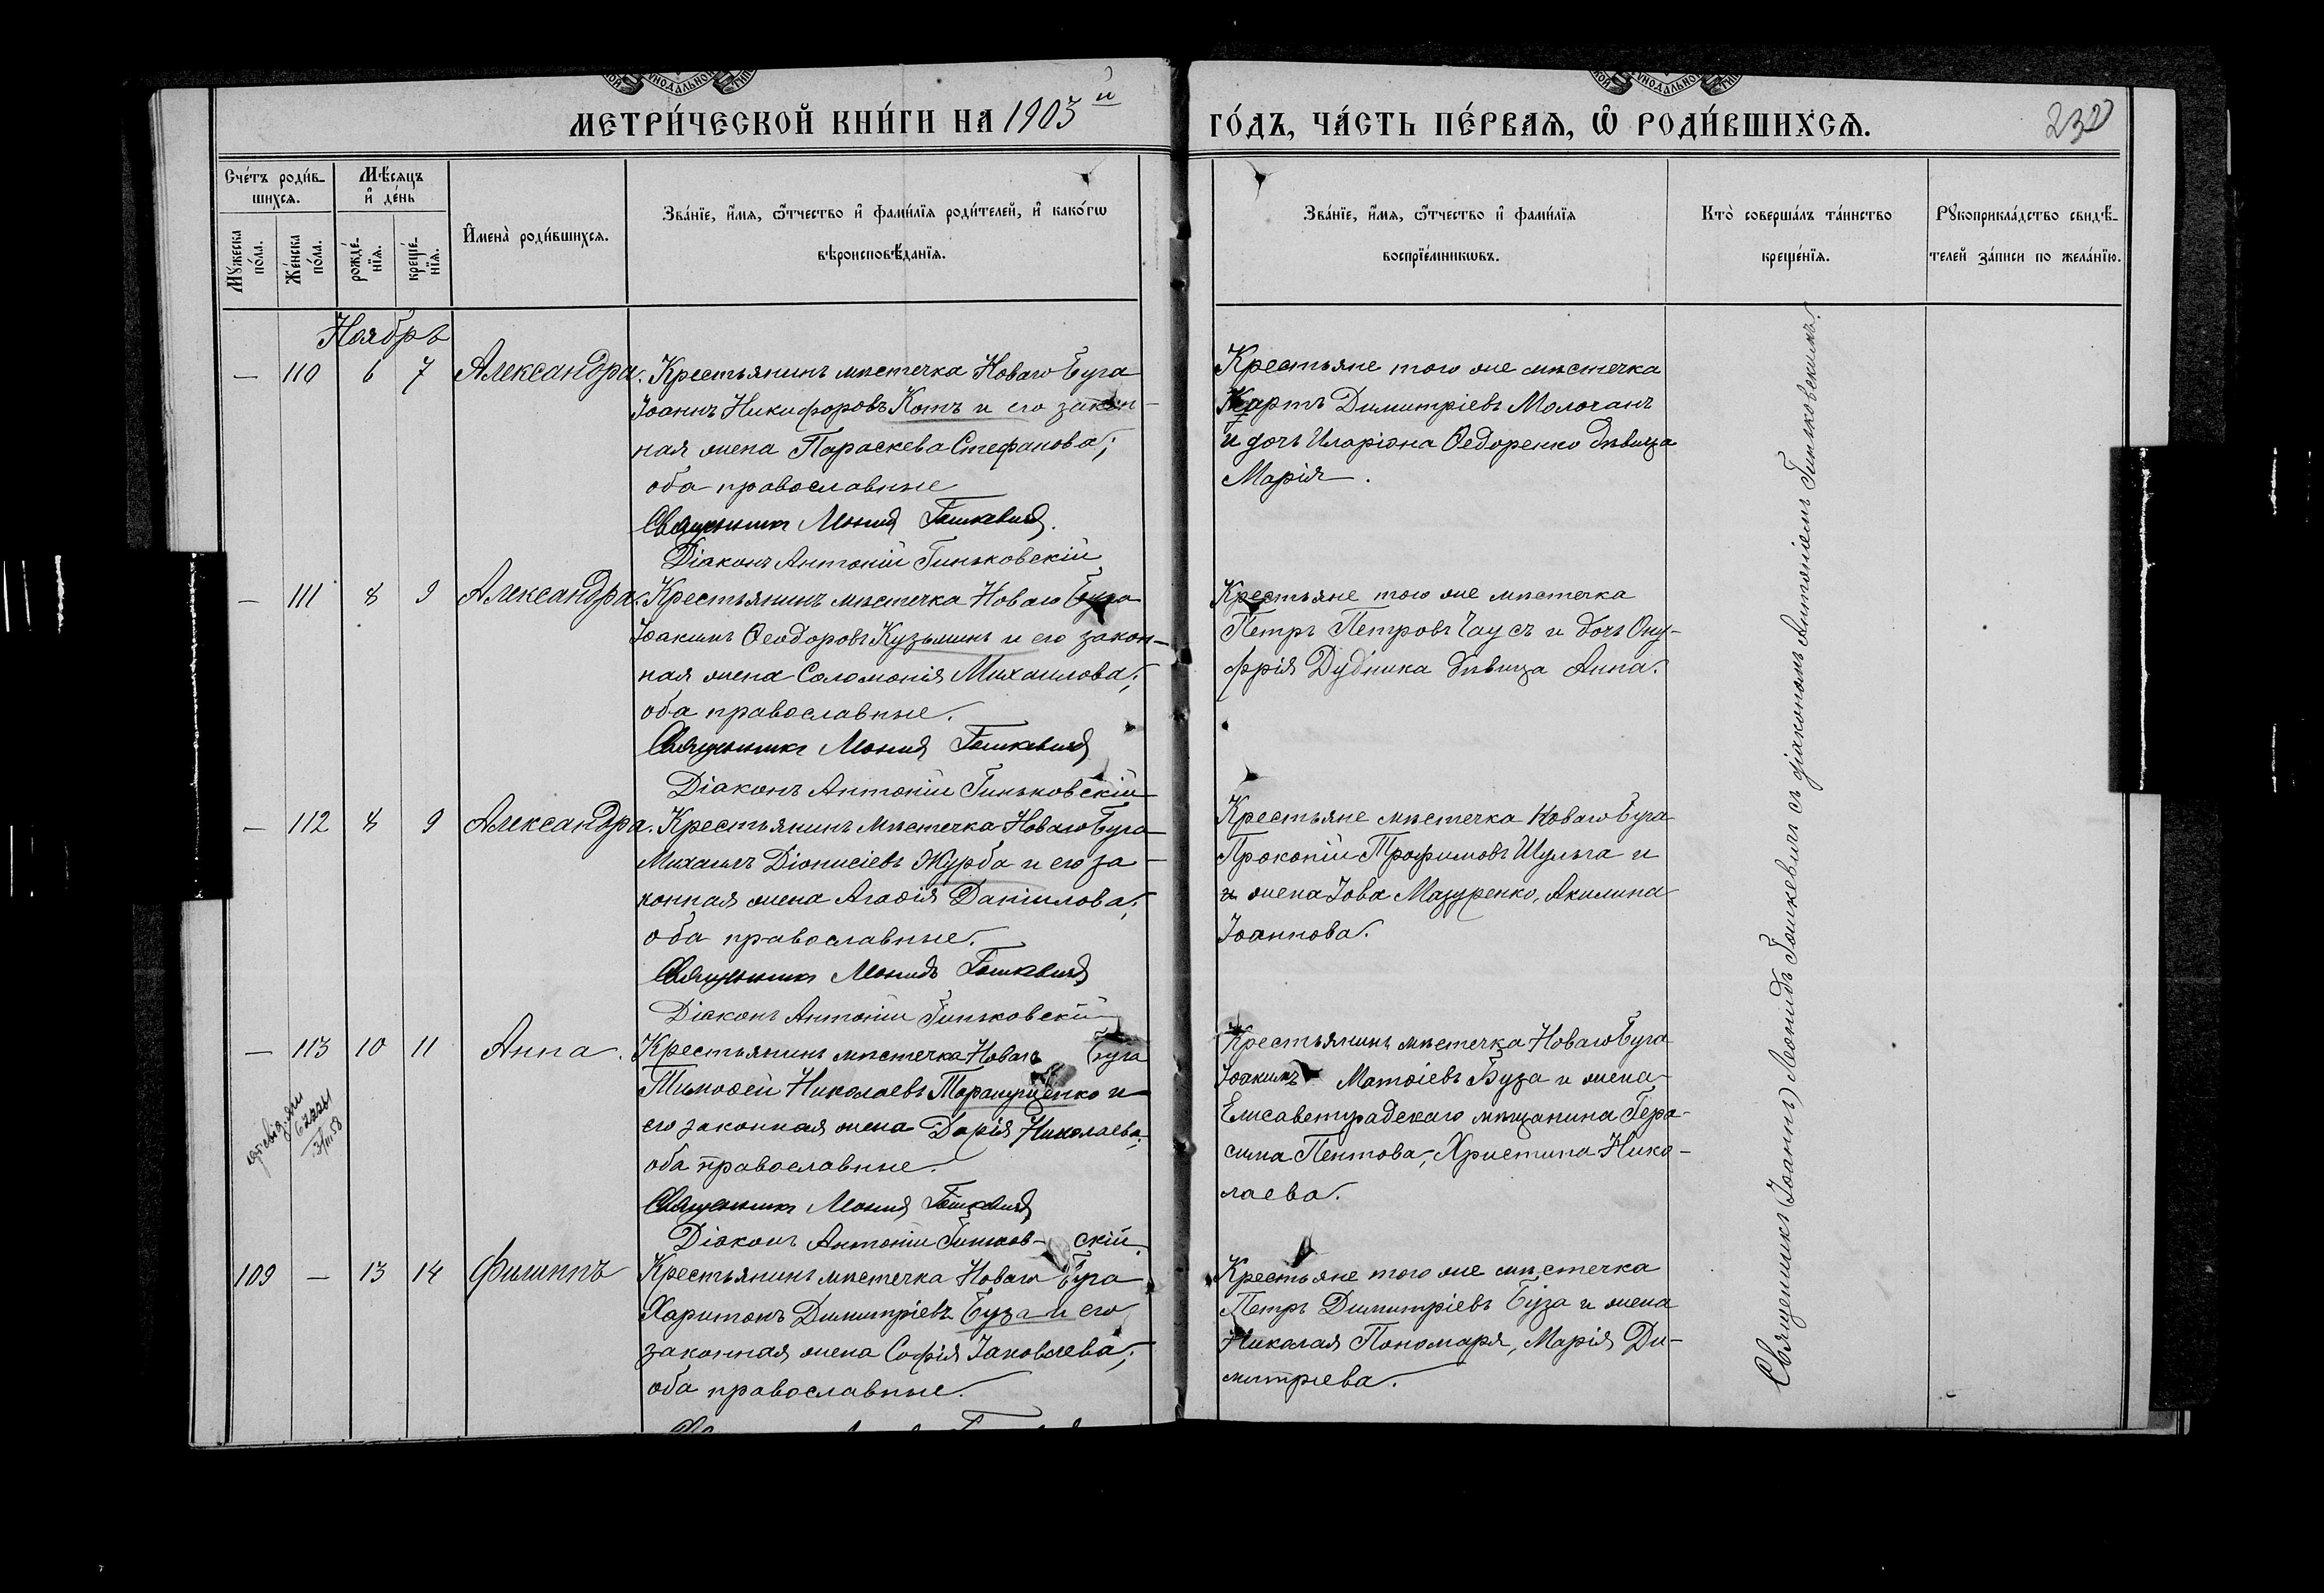 МЕТРИ́ЧЕСКОЙ КНИ́ГИ НА 1903й
ГО́ДЪ, ЧА́СТЬ ПЕ́РВАѦ, Ѿ РОДИ́ВШИХСѦ.
Сче́тъ роди́в-
шихсѧ.
Мꙋ́жеска
по́ла.
Же́нска
по́ла.
Мѣ́сѧцъ
и҆ де́нь
рожде́-
нїѧ.
креще́-
нїѧ.
И҆мена̀ роди́вшихсѧ.
Зва́нїе, и҆́мѧ, ѻ҆́тчество и҆ фами́лїѧ роди́телей, и҆ како́гѡ
вѣроисповѣ́данїѧ.
Зва́нїе, и҆́мѧ, ѻ҆́тчество и҆ фами́лїѧ
воспрїе́мникѡвъ.
Кто̀ соверша́лъ та́инство
креще́нїѧ.
Рꙋкоприкла́дство свидѣ́-
телей за́писи по жела́нїю.
Ноябрь
— 110 6 7 Александра.
Крестьянинъ мѣстечка Новаго Буга
Іоаннъ Никифоровъ Котъ и его закон-
ная жена Параскева Стефанова;
оба православные
Священникъ Леонидъ Гошкевичъ.
Діаконъ Антоній Гиньковскій
Крестьяне того же мѣстечка
Карпъ Димитріевъ Молочанъ
и дочь Иларіона Ѳедоренко дѣвица
Марія.
— 111 8 9 Александра.
Крестьянинъ мѣстечка Новаго Буга
Іоакимъ Ѳеодоровъ Кузьминъ и его закон-
ная жена Соломонія Михаилова;
оба православные.
Священникъ Леонидъ Гошкевичъ
Діаконъ Антоній Гиньковскій
Крестьяне того же мѣстечка
Петръ Петровъ Чаусъ и дочь Ону-
фрія Дудника дѣвица Анна.
— 112 8 9 Александра.
Крестьянинъ мѣстечка Новаго Буга
Михаилъ Діонисіевъ Журба и его за-
конная жена Агаѳія Даніилова;
оба православные.
Священникъ Леонидъ Гошкевичъ
Діаконъ Антоній Гиньковскій
Крестьяне мѣстечка Новаго Буга
Прокопій Трофимовъ Шульга и
и жена Іова Мазуренко, Акилина
Іоаннова.
— 113 10 11 Анна.
Крестьянинъ мѣстечка Новаго Буга
Тимоѳей Николаевъ Таращенко и
его законная жена Дарія Николаева;
оба православные.
Священникъ Леонидъ Гошкевичъ
Діаконъ Антоній Гиньков- скій.
Крестьянинъ мѣстечка Новаго Буга
Іоакимъ Матѳіевъ Буза и жена
Елисаветградскаго мѣщанина Гера-
сима Пентова, Христина Нико-
лаева.
109 — 13 14 Филиппъ
Крестьянинъ мѣстечка Новаго Буга
Харитонъ Димитріевъ Буза и его
законная жена Софія Іаковлева;
оба православные.
Крестьяне того же мѣстечка
Петръ Димитріевъ Буза и жена
Николая Пономаря, Марія Ди-
митріева.
Священникъ (Іоаннъ) Леонидъ Гошкевичъ съ діакономъ Антоніемъ Гиньковскимъ.